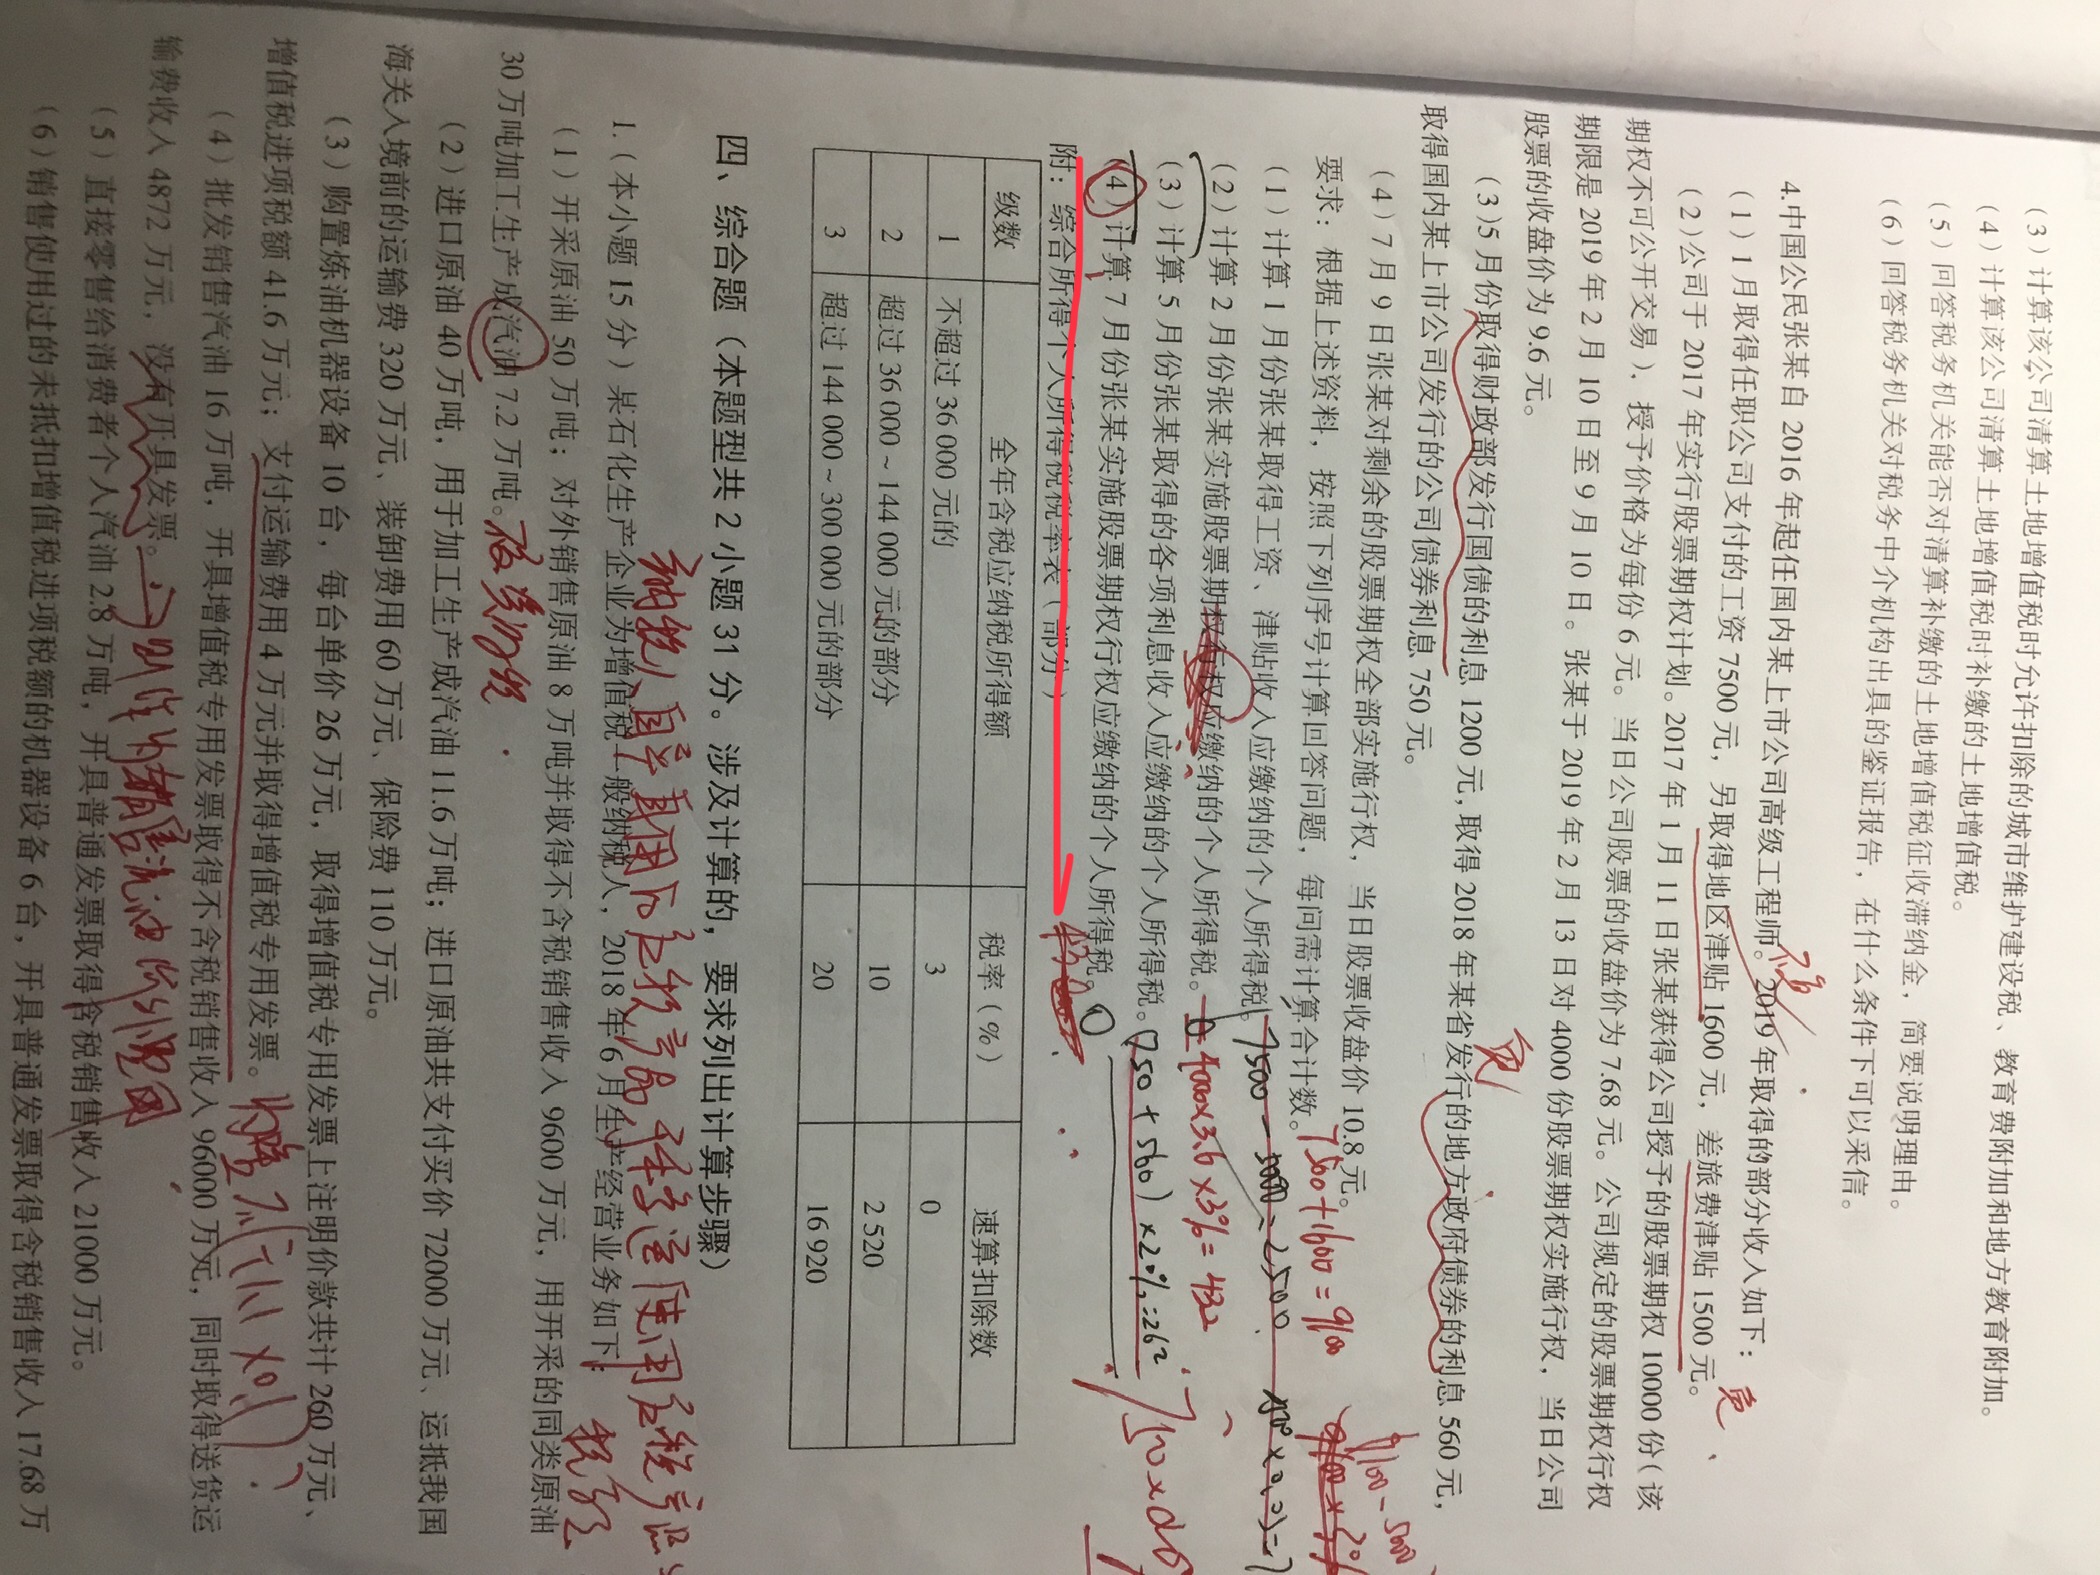 (3)计算该公司清算土地增值税时允许扣除的城市维护建设税、教育费附加和地方教育附加。
(4)计算该公司清算土地增值税时补缴的土地增值税。
(5)回答税务机关能否对清算补缴的土地增值税征收滞纳金,简要说明理由。
(6)回答税务机关对税务中介机构出具的鉴证报告,在什么条件下可以采信。
4.中国公民张某自2016年起任国内某上市公司高级工程师。2019年取得的部分收入如下:
(1)1月取得任职公司支付的工资7500元,另取得地区津贴1600元,差旅费津贴1500元。
免
(2)公司于2017年实行股票期权计划。2017年1月11日张某获得公司授予的股票期权10000份(该
期权不可公开交易),授予价格为每份6元。当日公司股票的收盘价为7.68元。公司规定的股票期权行权
期限是2019年2月10日至9月10日。张某于2019年2月13日对4000份股票期权实施行权,当日公司
股票的收盘价为9.6元。
免
(3)5月份取得财政部发行国债的利息1200元,取得2018年某省发行的地方政府债券的利息560元,
取得国内某上市公司发行的公司债券利息750元。
(4)7月9日张某对剩余的股票期权全部实施行权,当日股票收盘价10.8元。
要求:根据上述资料,按照下列序号计算回答问题,每问需计算合计数。
7500+1600=9100
9100-5000
(1)计算1月份张某取得工资、津贴收入应缴纳的个人所得税。
7500-5000=2500
(2)计算2月份张某实施股票期权行权应缴纳的个人所得税。
4000×3.6×3%=432
(3)计算5月份张某取得的各项利息收入应缴纳的个人所得税。
(750+560)×20%=262
(4)计算7月份张某实施股票期权行权应缴纳的个人所得税。
附:综合所得个人所得税税率表(部分)
级数 全年含税应纳税所得额 税率(%) 速算扣除数
1 不超过36 000元的 3 0
2 超过36 000~144 000元的部分 10 2 520
3 超过144 000~300 000元的部分 20 16 920
四、综合题(本题型共2小题31分。涉及计算的,要求列出计算步骤)
1.(本小题15分)某石化生产企业为增值税一般纳税人,2018年6月生产经营业务如下:
(1)开采原油50万吨;对外销售原油8万吨并取得不含税销售收入9600万元,用开采的同类原油
30万吨加工生产成汽油7.2万吨。
(2)进口原油40万吨,用于加工生产成汽油11.6万吨;进口原油共支付买价72000万元、运抵我国
海关入境前的运输费320万元、装卸费用60万元、保险费110万元。
(3)购置炼油机器设备10台,每台单价26万元,取得增值税专用发票上注明价款共计260万元、
增值税进项税额41.6万元;支付运输费用4万元并取得增值税专用发票。
(4)批发销售汽油16万吨,开具增值税专用发票取得不含税销售收入96000万元,同时取得送货运
输费收入4872万元,没有开具发票。
(5)直接零售给消费者个人汽油2.8万吨,开具普通发票取得含税销售收入21000万元。
(6)销售使用过的未抵扣增值税进项税额的机器设备6台,开具普通发票取得含税销售收入17.68万